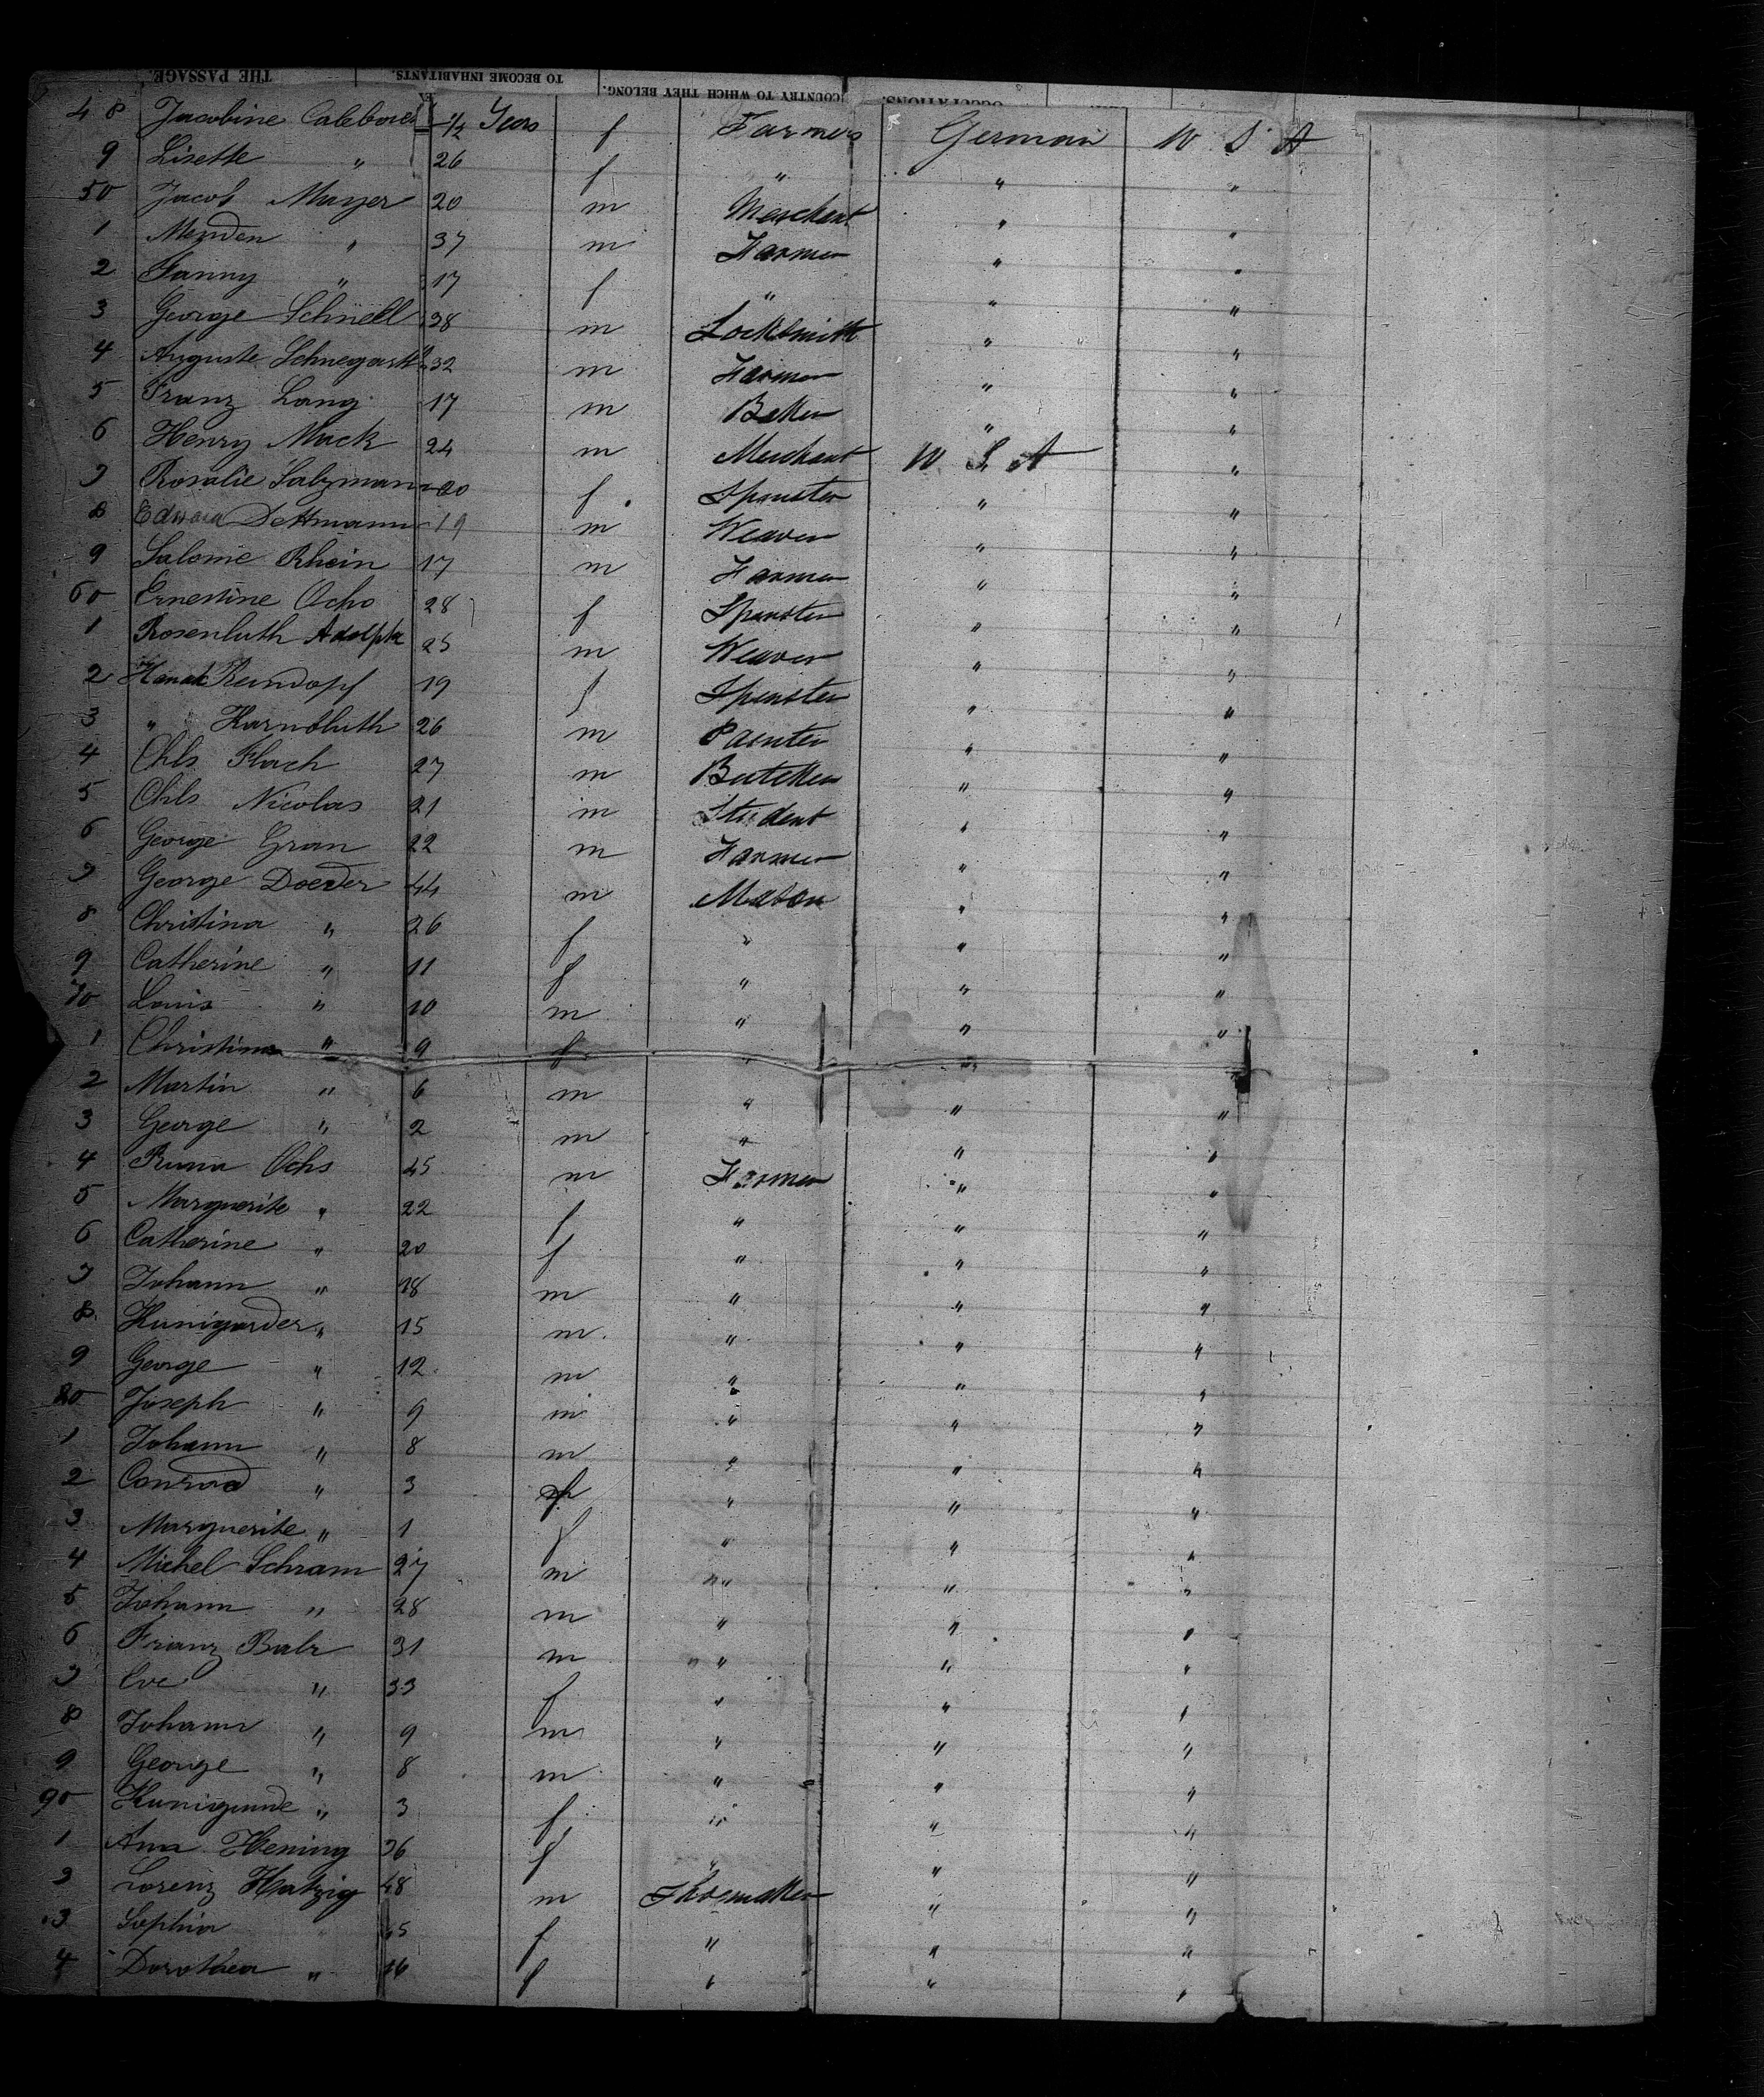 THE PASSAGE. TO BECOME INHABITANTS. COUNTRY TO WHICH THEY BELONG. OCCUPATIONS.
48 Jacobine 1/2 Years f Farmer German U S A
9 Lisette " 26 f " " "
50 Jacob Mayer 20 m Merchant " "
1 " 37 m Farmer " "
2 Fanny " 17 f " " "
3 George Schnell 38 m Locksmith " "
4 Auguste 32 m Farmer " "
5 Franz Lang 17 m Baker " "
6 Henry Mack 24 m Merchant U S A "
7 Rosalie Salzmann 20 f Spinster " "
8 Edward Dettmann 19 m Weaver " "
9 Salome Rhein 17 m Farmer " "
60 Ernestine Ochs 28 f Spinster " "
1 Rosenluth Adolph 25 m Weaver " "
2 19 f Spinster " "
3 " Karnbluth 26 m Painter " "
4 Chls Flach 27 m Butcher " "
5 Chls Nicolas 21 m Student " "
6 George Gran 22 m Farmer " "
7 George Doerder 44 m Mason " "
8 Christina " 26 f " " "
9 Catherine " 11 f " " "
70 Louis " 10 m " " "
1 Christina " 9 f " " "
2 Martin " 6 m " " "
3 George " 2 m " " "
4 Ochs 45 m Farmer " "
5 Marguerite " 22 f " " "
6 Catherine " 20 f " " "
7 Johann " 18 m " " "
8 " 15 m " " "
9 George " 12 m " " "
80 Joseph " 9 m " " "
1 Johann " 8 m " " "
2 Conrad " 3 " " "
3 Marguerite " 1 f " " "
4 Michel Schram 27 m " " "
5 Johann " 28 m " " "
6 Franz Balz 31 m " " "
7 Eve " 33 f " " "
8 Johann " 9 m " " "
9 George " 8 m " " "
90 Kunigunde " 3 f " " "
1 Ana Hening 36 f " " "
2 Lorenz Hatzig 48 m Shoemaker " "
3 Sophia " 45 f " " "
4 Dorothea " 16 f " " "